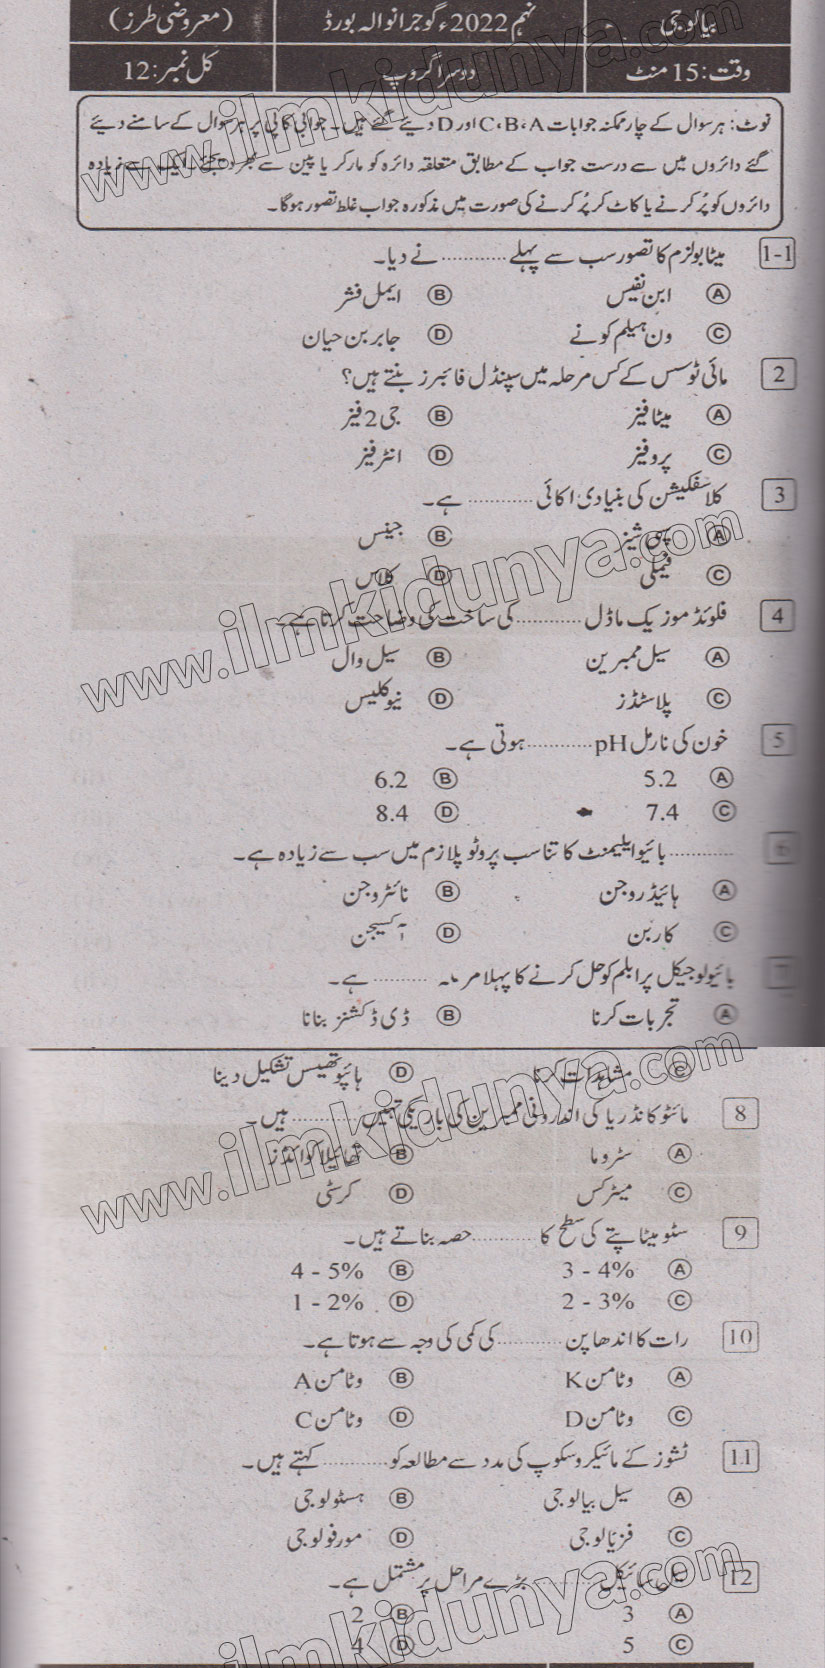 بیالوجی نہم 2022ء گوجرانوالہ بورڈ (معروضی طرز)
وقت: 15 منٹ دوسرا گروپ کل نمبر: 12
نوٹ: ہر سوال کے چار ممکنہ جوابات C،B،A اور D دیئے گئے ہیں۔ جوابی کاپی پر ہر سوال کے سامنے دیئے
گئے دائروں میں سے درست جواب کے مطابق متعلقہ دائرہ کو مارکر یا پین سے بھر دیجئے۔ ایک سے زیادہ
دائروں کو پُر کرنے یا کاٹ کر پُر کرنے کی صورت میں مذکورہ جواب غلط تصور ہوگا۔
1-1 میٹابولزم کا تصور سب سے پہلے ........... نے دیا۔
A ابن نفیس B ایمل فشر
C ون ہیلم کوہنے D جابر بن حیان
2 مائی ٹوسس کے کس مرحلہ میں سپنڈل فائبرز بنتے ہیں؟
A میٹا فیز B جی 2 فیز
C پروفیز D انٹرفیز
3 کلاسفکیشن کی بنیادی اکائی ........... ہے۔
A سپی شیز B جینس
C فیملی D کلاس
4 فلوئڈ موزیک ماڈل ........... کی ساخت کی وضاحت کرتا ہے۔
A سیل ممبرین B سیل وال
C پلاسٹڈز D نیوکلیس
5 خون کی نارمل pH ........... ہوتی ہے۔
A 5.2 B 6.2
C 7.4 D 8.4
6 ........... بائیو ایلیمنٹ کا تناسب پروٹوپلازم میں سب سے زیادہ ہے۔
A ہائیڈروجن B نائٹروجن
C کاربن D آکسیجن
7 بائیولوجیکل پرابلم کو حل کرنے کا پہلا مرحلہ ......... ہے۔
A تجربات کرنا B ڈی ڈکشنز بنانا
C مشاہدات کرنا D ہائپوتھیسس تشکیل دینا
8 مائٹوکانڈریا کی اندرونی ممبرین کی باریک تہیں ........... ہیں۔
A سٹروما B تھائیلاکوائڈز
C میٹرکس D کرسٹی
9 سٹومیٹا پتے کی سطح کا ........... حصہ بناتے ہیں۔
A 3 - 4% B 4 - 5%
C 2 - 3% D 1 - 2%
10 رات کا اندھا پن ........... کی کمی کی وجہ سے ہوتا ہے۔
A وٹامن K B وٹامن A
C وٹامن D D وٹامن C
11 ٹشوز کے مائیکروسکوپ کی مدد سے مطالعہ کو ........... کہتے ہیں۔
A سیل بیالوجی B ہسٹولوجی
C فزیالوجی D مورفولوجی
12 سیل سائیکل ........... بڑے مراحل پر مشتمل ہے۔
A 3 B 2
C 5 D 4
www.ilmkidunya.com
www.ilmkidunya.com
www.ilmkidunya.com
www.ilmkidunya.com